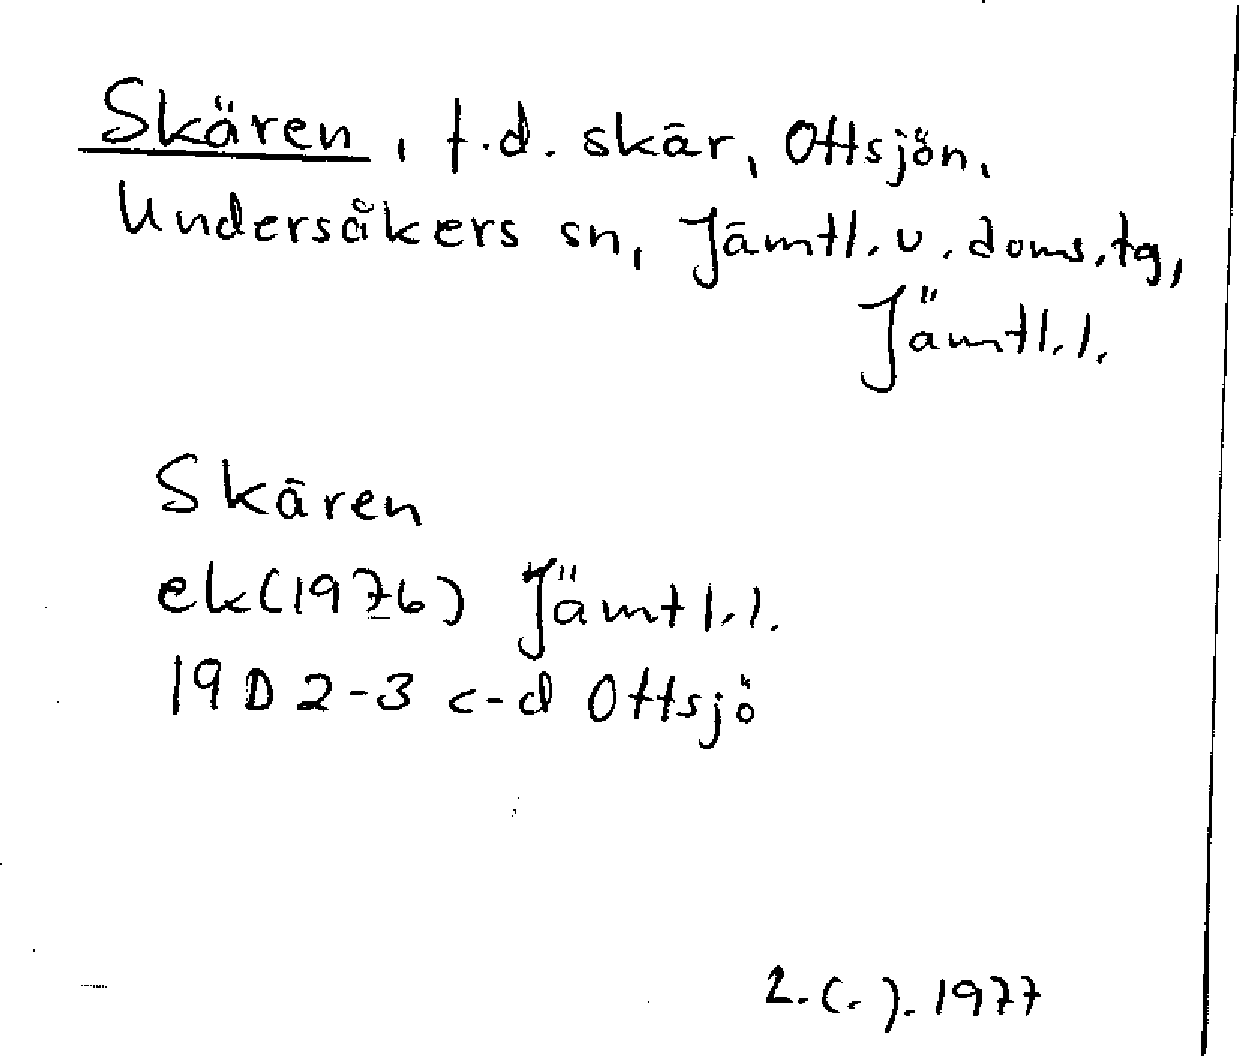 Skären, f.d. skär, Ottsjön,
Undersåkers sn, Jämtl. v. doms. tg,
Jämtl. l.
Skären
ek (1976) Jämtl. l.
19 D 2-3 c-d Ottsjö
1977